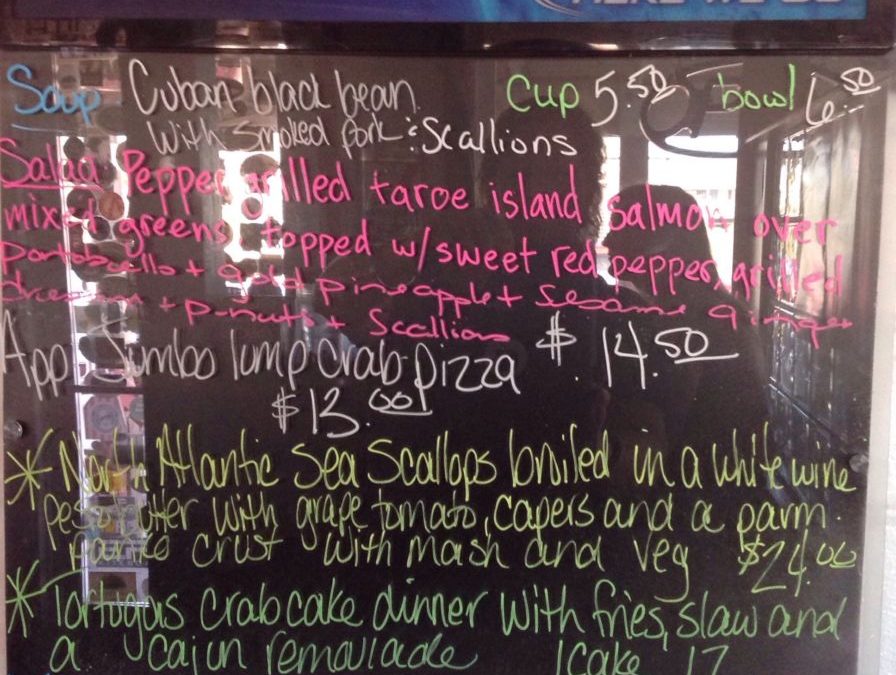 HERE WE GO
Soup Cuban black bean Cup 5.50 bowl 6.50
With smoked pork & Scallions
Salad Pepper grilled taroe island salmon over
mixed greens topped w/sweet red pepper, grilled
portobello + gold pineapple + sesame ginger
dressing + p-nuts + Scallions $.14.50
App. Jumbo lump crab pizza
$13.00
* North Atlantic Sea Scallops broiled in a white wine
pesto butter with grape tomato, capers and a parm.
Panko crust with mash and veg $24.00
* Tortugas crab cake dinner with fries, slaw and
a cajun remoulade 1cake 17